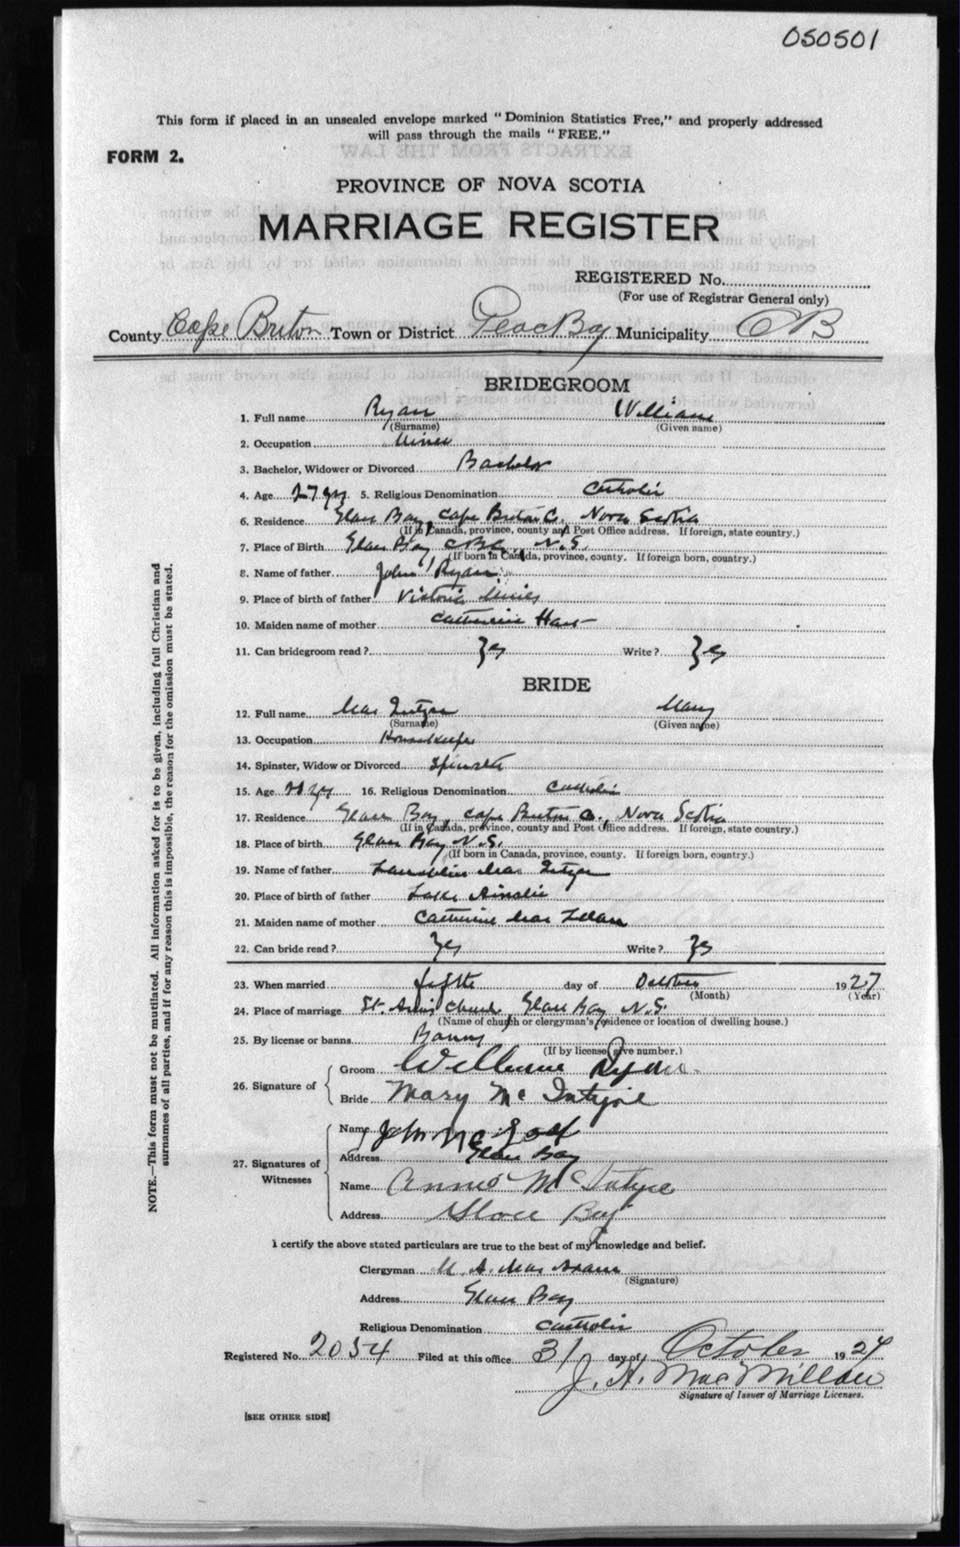 050501
This form if placed in an unsealed envelope marked "Dominion Statistics Free," and properly addressed
will pass through the mails "FREE."
FORM 2.
PROVINCE OF NOVA SCOTIA
MARRIAGE REGISTER
REGISTERED No.
(For use of Registrar General only)
County Cape Breton Town or District Glace Bay Municipality CB
BRIDEGROOM
1. Full name Ryan William
(Surname) (Given name)
2. Occupation Miner
3. Bachelor, Widower or Divorced Bachelor
4. Age 27 yrs 5. Religious Denomination Catholic
6. Residence Glace Bay, Cape Breton C. Nova Scotia
(If in Canada, province, county and Post Office address. If foreign, state country.)
7. Place of Birth Glace Bay C.B. N.S.
(If born in Canada, province, county. If foreign born, country.)
8. Name of father John Ryan
9. Place of birth of father Victoria Mines
10. Maiden name of mother Catherine
11. Can bridegroom read? Yes Write? Yes
BRIDE
12. Full name Mac Intyre Mary
(Surname) (Given name)
13. Occupation Housekeeper
14. Spinster, Widow or Divorced Spinster
15. Age yrs 16. Religious Denomination Catholic
17. Residence Glace Bay, Cape Breton Co., Nova Scotia
(If in Canada, province, county and Post Office address. If foreign, state country.)
18. Place of birth Glace Bay N.S.
(If born in Canada, province, county. If foreign born, country.)
19. Name of father Lauchlin Mac Intyre
20. Place of birth of father Lake Ainslie
21. Maiden name of mother Catherine Mac Lellan
22. Can bride read? Yes Write? Yes
23. When married fifth day of October 1927
(Month) (Year)
24. Place of marriage St. Ann's Church, Glace Bay N.S.
(Name of church or clergyman's residence or location of dwelling house.)
25. By license or banns Banns
(If by license give number.)
26. Signature of
Groom William Ryan
Bride Mary Mc Intyre
27. Signatures of Witnesses
Name John Mc
Address Glace Bay
Name Annie McIntyre
Address Glace Bay
I certify the above stated particulars are true to the best of my knowledge and belief.
Clergyman M. A. Mac Adam
(Signature)
Address Glace Bay
Religious Denomination Catholic
Registered No. 2054 Filed at this office 31 day of October 1927
J. H. MacMillan
Signature of Issuer of Marriage Licenses.
[SEE OTHER SIDE]
NOTE.—This form must not be mutilated. All information asked for is to be given, including full Christian and
surnames of all parties, and if for any reason this is impossible, the reason for the omission must be stated.